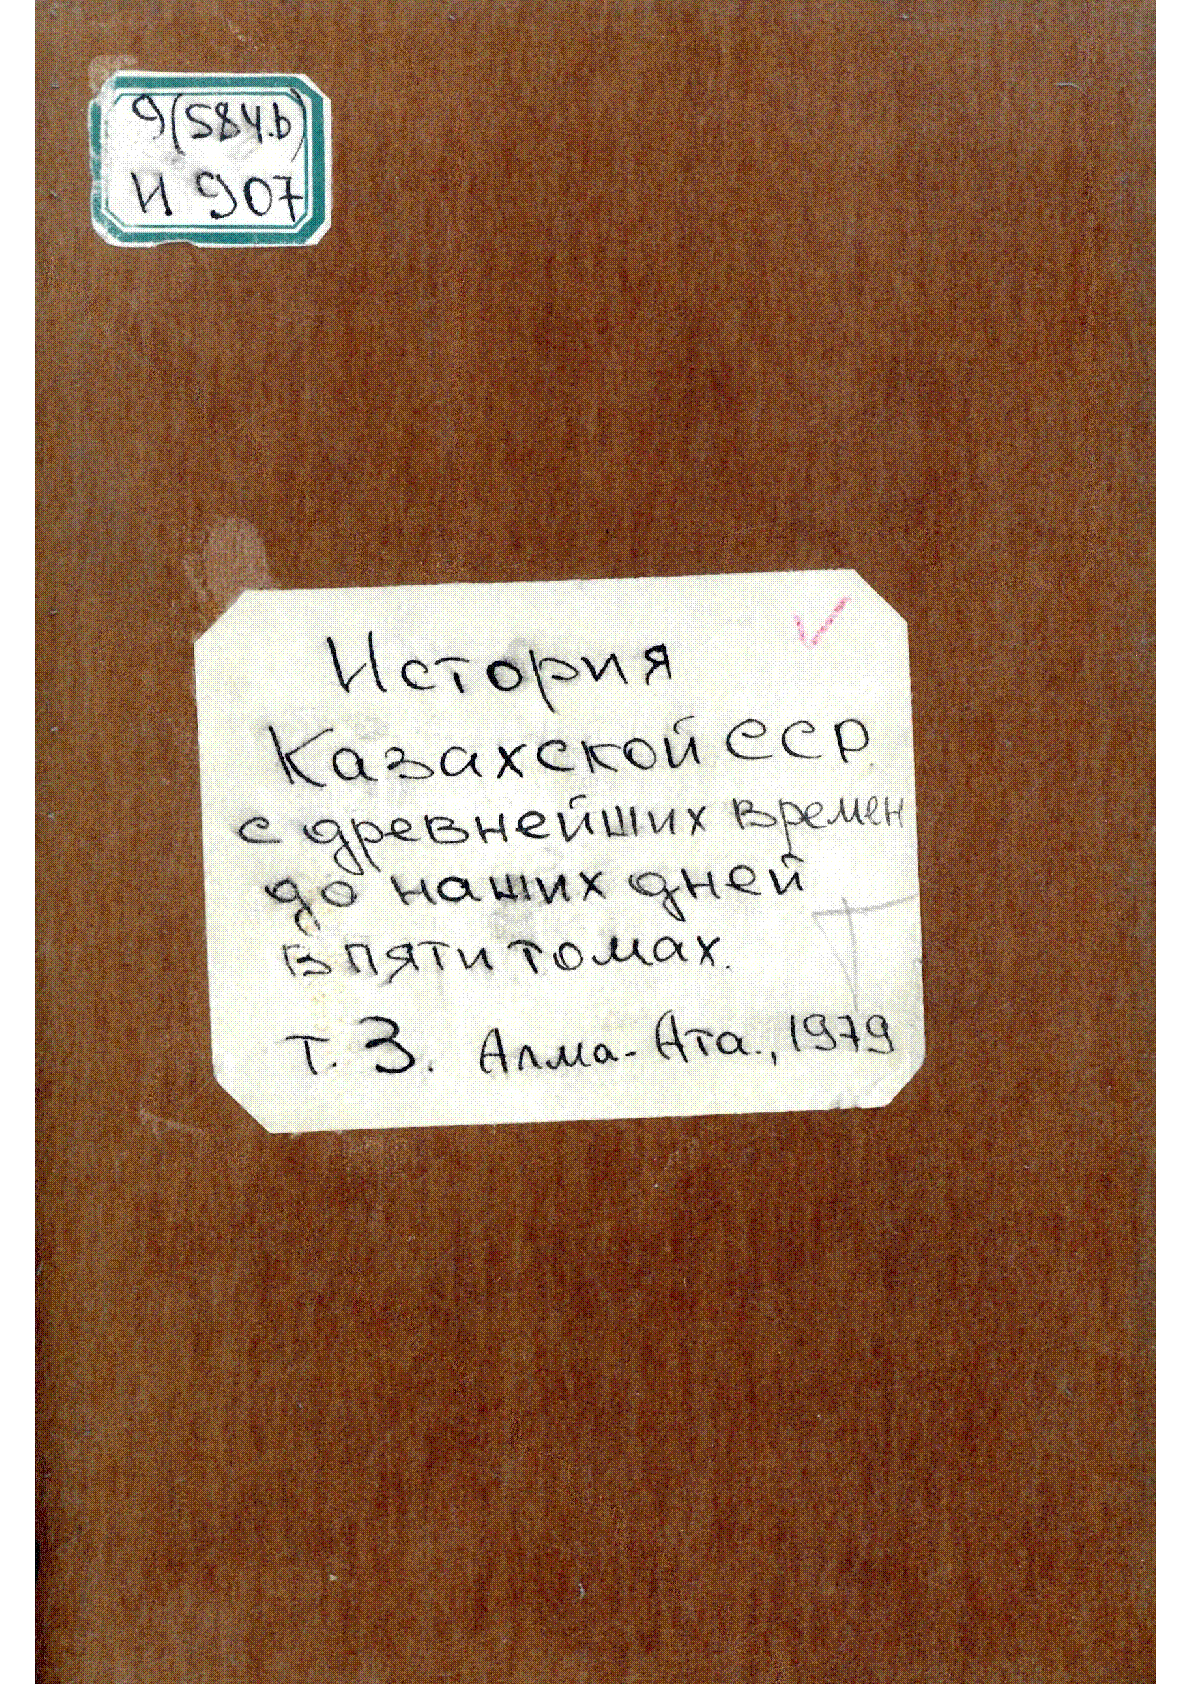 9(584.b)
И 907
История
Казахской ССР
с древнейших времен
до наших дней
в пяти томах.
т. 3. Алма-Ата., 1979